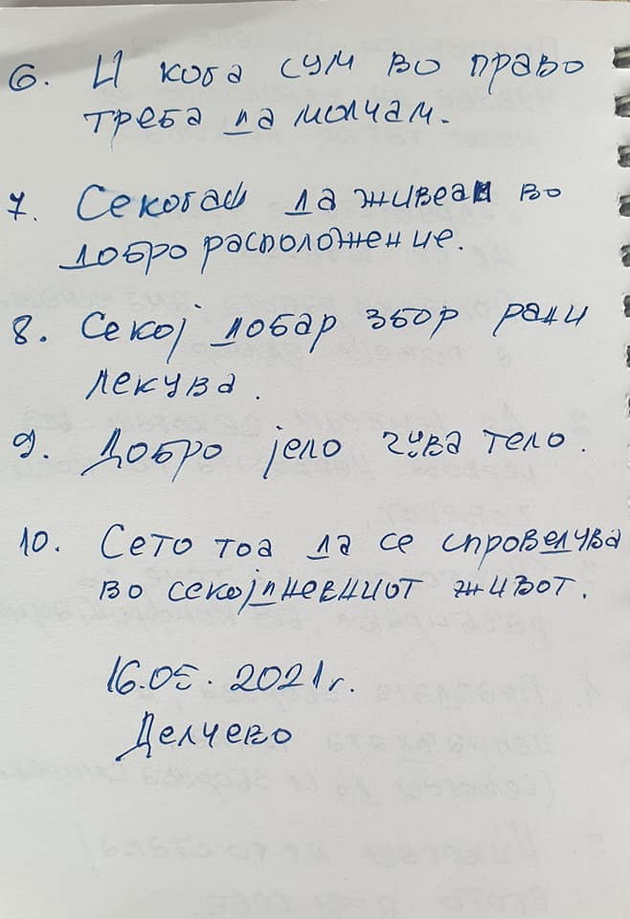 6. И кога сум во право
треба да молчам.
7. Секогаш да живеам во
добро расположение.
8. Секој добар збор рани
лекува.
9. Добро јело чува тело.
10. Сето тоа да се спроведува
во секојдневниот живот.
16.05. 2021г.
Делчево